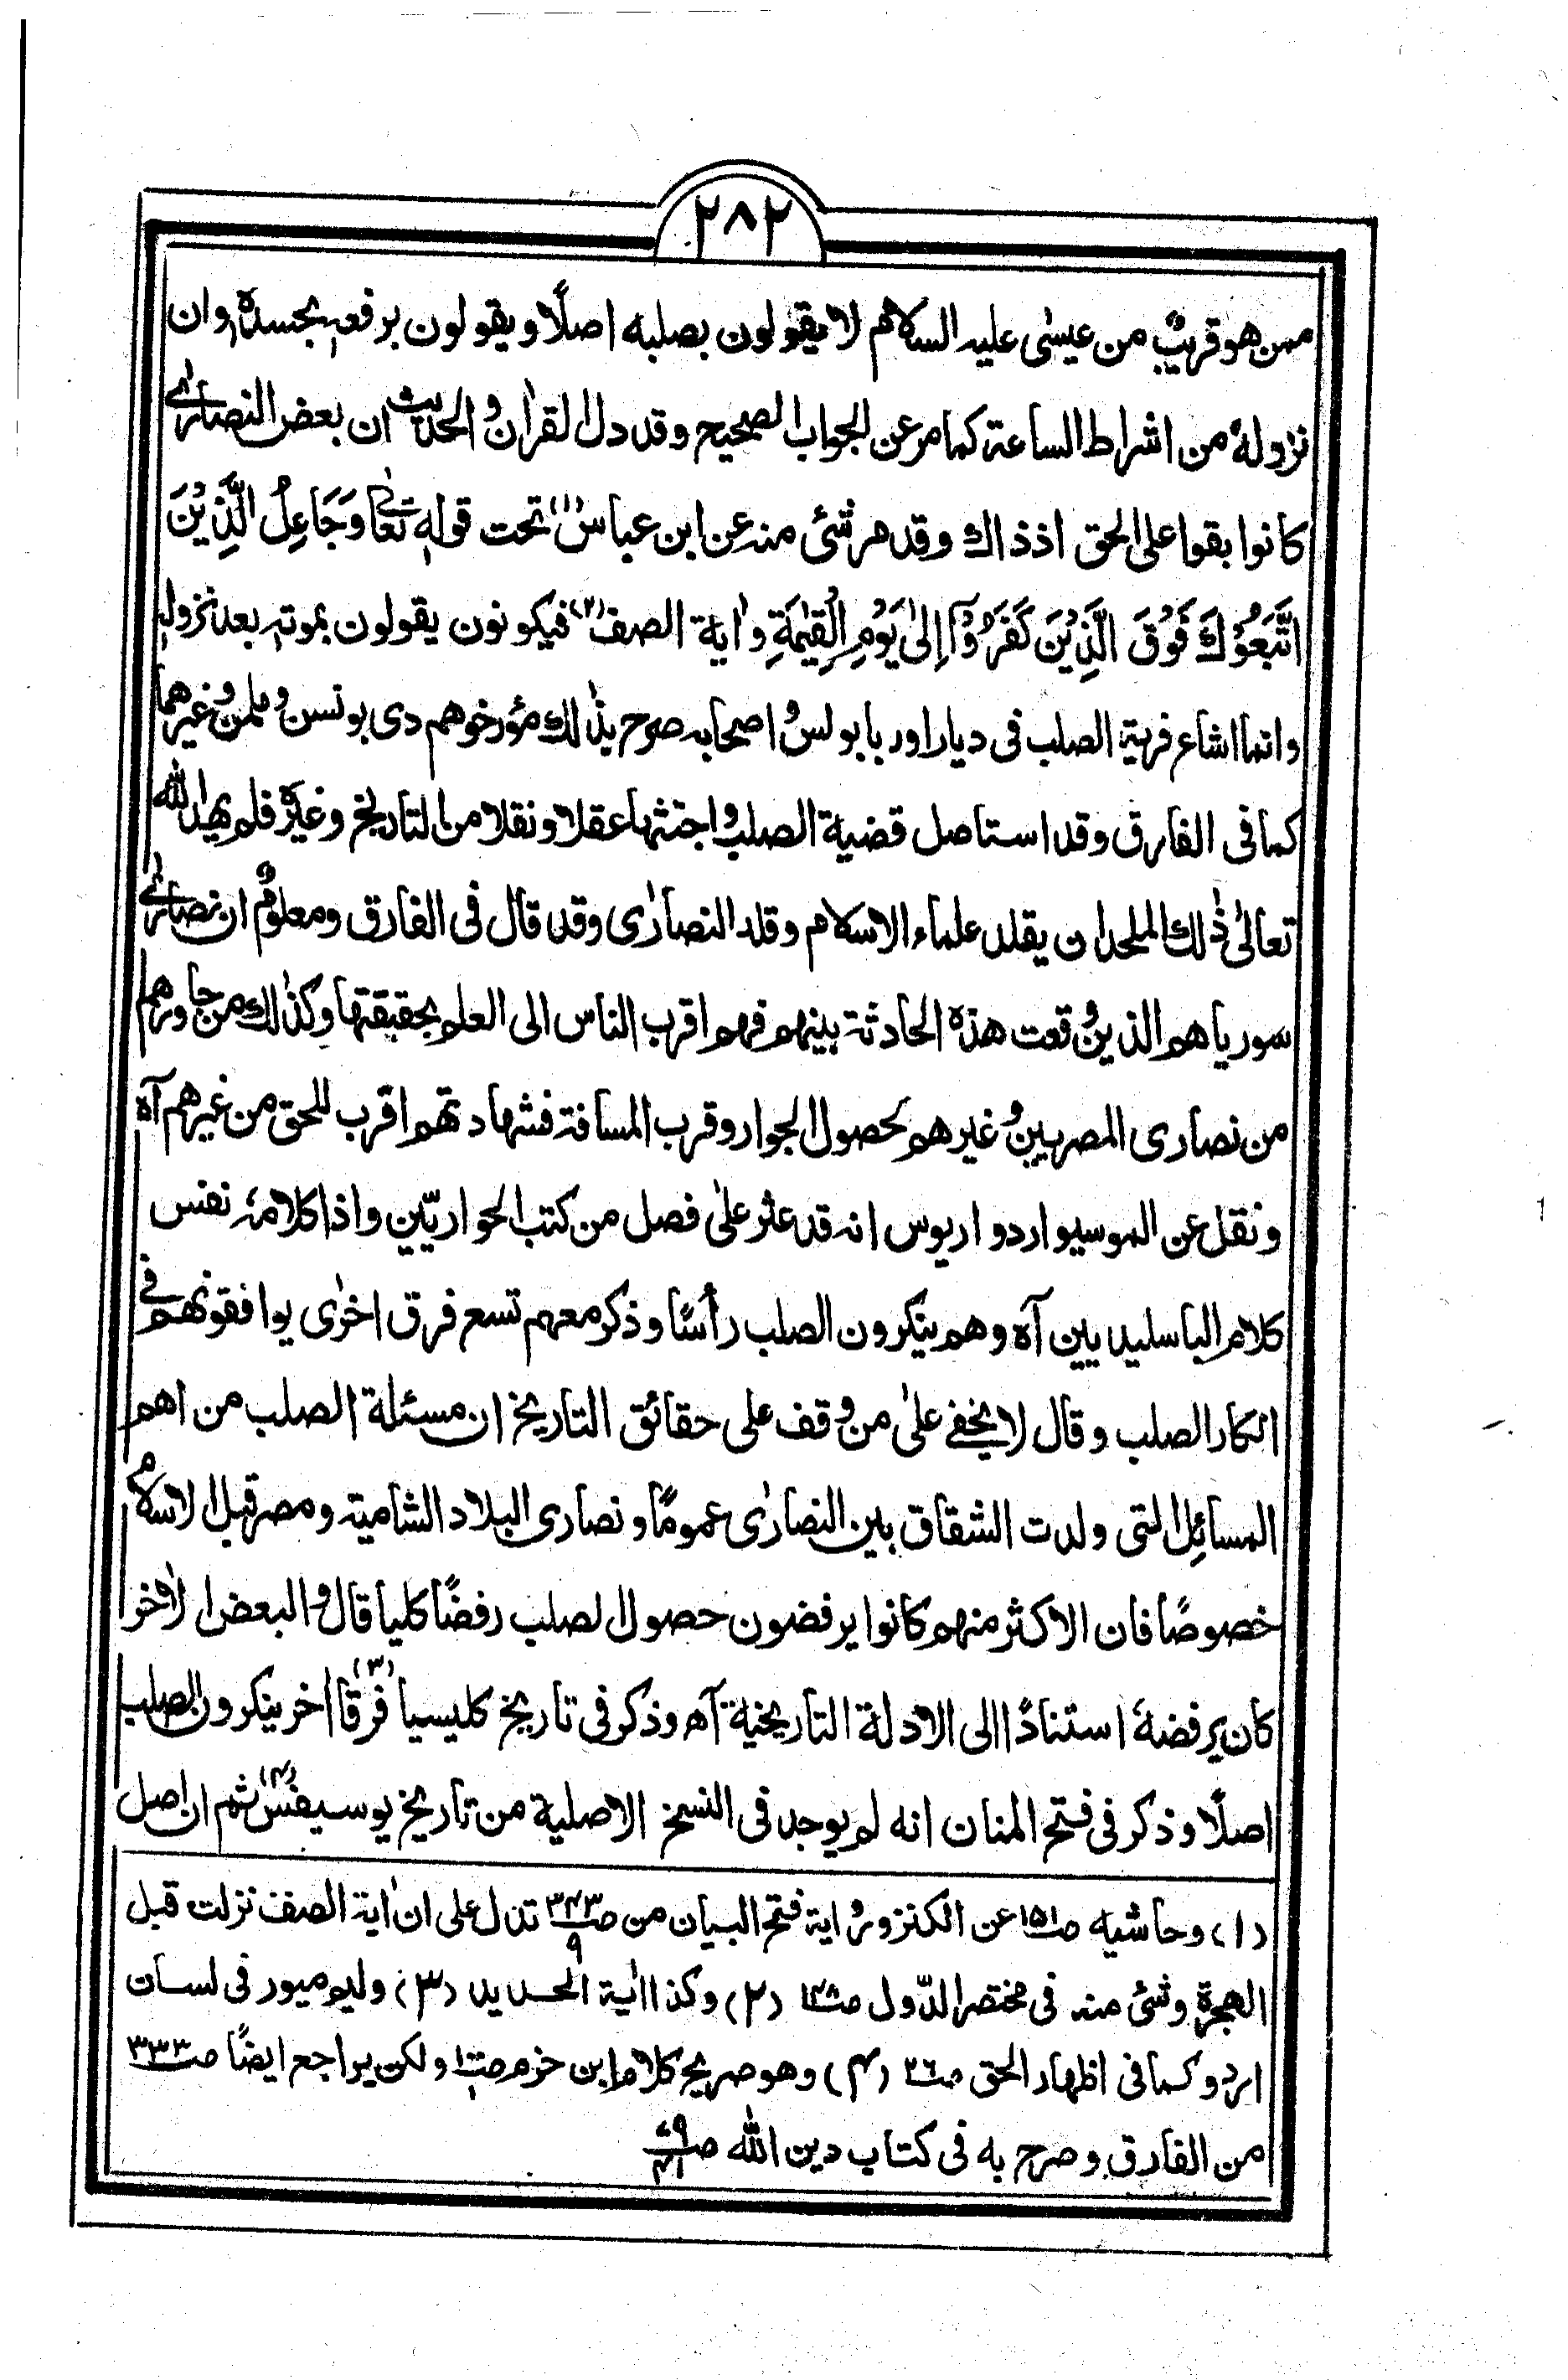 ٢٨٢
ممن هو قريب من عيسٰى عليه السلام لا يقولون بصلبه اصلًا و يقولون برفعه بجسده وان
نزوله من اشراط الساعة كما مر عن الجواب الصحيح وقد دل القراٰن والحديث ان بعض النصارٰى
كانوا بقوا على الحق اذ ذاك وقد مر شئ منه عن ابن عباس (١) تحت قوله تعالٰى وَجَاعِلُ الَّذِيْنَ
اتَّبَعُوْكَ فَوْقَ الَّذِيْنَ كَفَرُوْآ اِلٰى يَوْمِ الْقِيٰمَةِ واٰية الصف (٢) فيكونون يقولون بموته بعد نزوله
وانما اشاع فرية الصلب فى ديار اوربا بولس و اصحابه صرح بذٰلك مؤرخوهم دى بونسن وملمن وغيرهما
كما فى الفارق وقد استاصل قضية الصلب واجتثها عقلا ونقلا من التاريخ وغيره فلم يهد الله
تعالٰى ذٰلك الملحد ان يقلد علماء الاسلام وقلد النصارٰى وقد قال فى الفارق ومعلوم ان نصارٰى
سوريا هم الذين وقعت هذه الحادثة بينهم فهم اقرب الناس الى العلم بحقيقتها وكذٰلك من جاورهم
من نصارى المصريين وغيرهم لحصول الجوار وقرب المسافة فشهادتهم اقرب للحق من غيرهم آه
ونقل عن الموسيو اردو اريوس انه قد عثر علٰى فصل من كتب الحواريّين واذا كلامه نفس
كلام الباسليديين آه وهم ينكرون الصلب رأسًا وذكر معهم تسع فرق اخرٰى يوافقونهم فى
انكار الصلب وقال لا يخفى علٰى من وقف على حقائق التاريخ ان مسئلة الصلب من اهم
المسائل التى ولدت الشقاق بين النصارٰى عمومًا و نصارى البلاد الشامية ومصر قبل الاسلام
خصوصًا فان الاكثر منهم كانوا يرفضون حصول الصلب رفضًا كليا قال والبعض الاٰخر
كان يرفضه استنادًا الى الادلة التاريخية آه وذكر فى تاريخ كليسيا (٣) فرقا اخر ينكرون الصلب
اصلًا وذكر فى فتح المنان انه لم يوجد فى النسخ الاصلية من تاريخ يوسيفس (٤) ثم ان اصل
(١) وحاشيه صـ١٥١ عن الكنز ورواية فتح البيان من صـ٣٤٣/٩ تدل على ان اٰية الصف نزلت قبل
الهجرة وشئ منه فى مختصر الدّول صـ١٣٨ (٢) وكذا اٰية الحديد (٣) وليم ميور فى لسان
اردو كما فى اظهار الحق صـ٣٦ (٤) وهو صريح كلام ابن حزم ولكن يراجع ايضًا صـ٣٣٣
من الفارق وصرح به فى كتاب دين الله